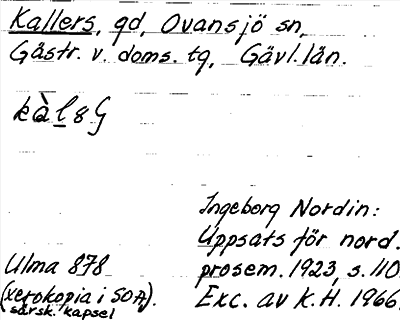 Kallers, gd, Ovansjö sn,
Gästr. v. doms. tg, Gävl. län.
kàl8G
Ingeborg Nordin:
Uppsats för nord.
prosem. 1923, s. 110.
Exc. av K.H. 1966.
Ulma 878
(xerokopia i SOA).
särsk. kapsel